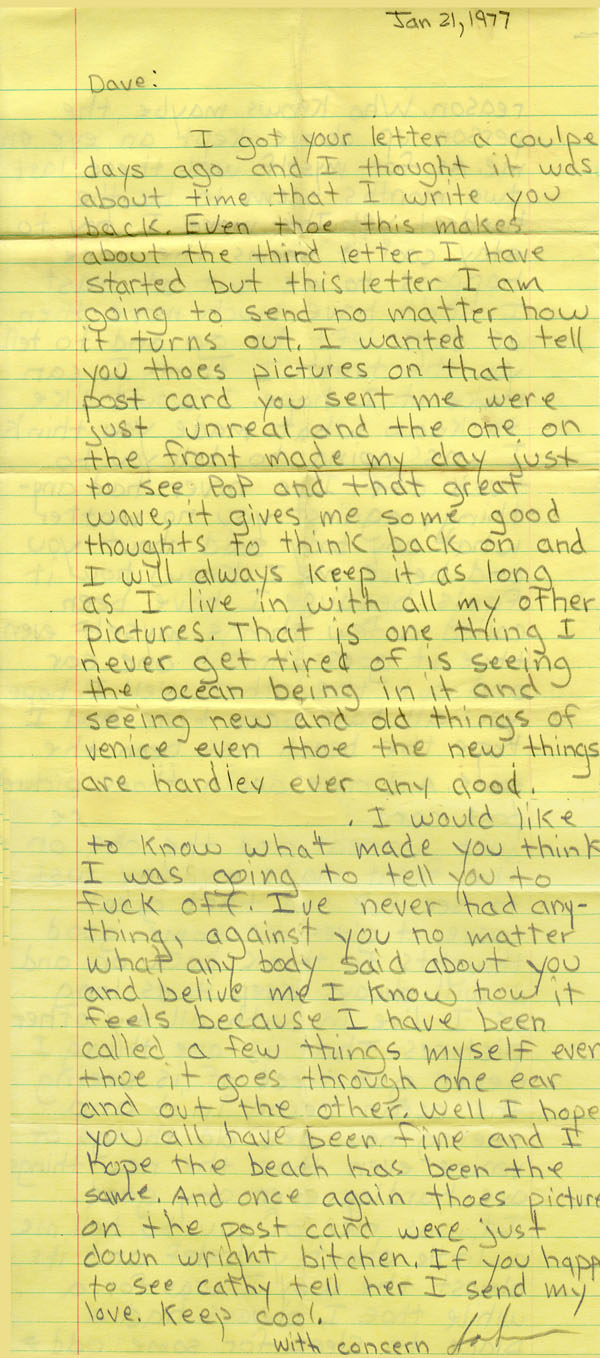 Jan 21, 1977
Dave:
I got your letter a coulpe
days ago and I thought it was
about time that I write you
back. Even thoe this makes
about the third letter I have
started but this letter I am
going to send no matter how
it turns out. I wanted to tell
you thoes pictures on that
post card you sent me were
just unreal and the one on
the front made my day just
to see POP and that great
wave, it gives me some good
thoughts to think back on and
I will always keep it as long
as I live in with all my other
pictures. That is one thing I
never get tired of is seeing
the ocean being in it and
seeing new and old things of
venice even thoe the new things
are hardley ever any good.
. I would like
to know what made you think
I was going to tell you to
fuck off. I've never had any-
thing, against you no matter
what any body said about you
and belive me I know how it
feels because I have been
called a few things myself even
thoe it goes through one ear
and out the other. Well I hope
you all have been fine and I
hope the beach has been the
same. And once again thoes picture
on the post card were just
down wright bitchen. If you happ
to see cathy tell her I send my
love. Keep cool.
with concern